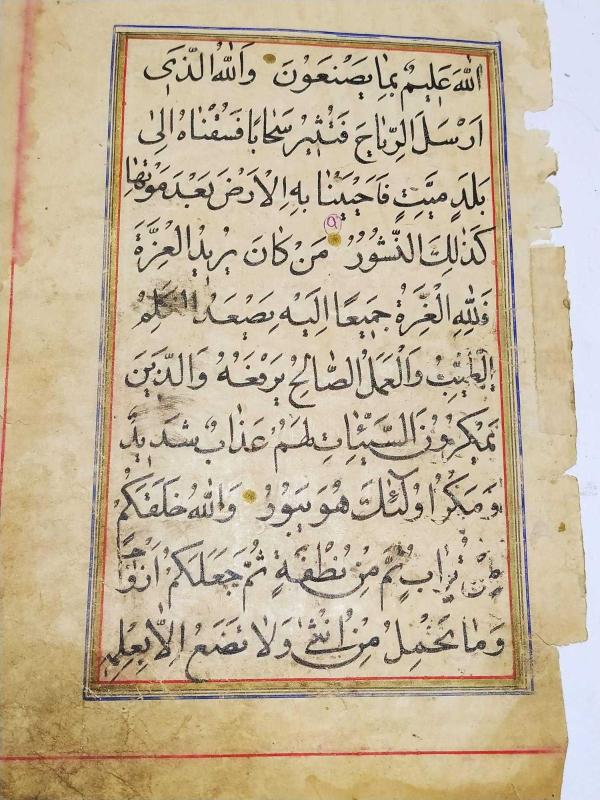 اللّٰهَ عَلِيمٌ بِمَا يَصْنَعُونَ وَاللّٰهُ الَّذٖى
اَرْسَلَ الرِّيَاحَ فَتُثٖيرُ سَحَابًا فَسُقْنَاهُ اِلٰى
بَلَدٍ مَيِّتٍ فَاَحْيَيْنَا بِهِ الْاَرْضَ بَعْدَ مَوْتِهَا
كَذٰلِكَ النُّشُورُ مَنْ كَانَ يُرٖيدُ الْعِزَّةَ
فَلِلّٰهِ الْعِزَّةُ جَمٖيعًا اِلَيْهِ يَصْعَدُ الْكَلِمُ
الطَّيِّبُ وَالْعَمَلُ الصَّالِحُ يَرْفَعُهُ وَالَّذٖينَ
يَمْكُرُونَ السَّيِّئَاتِ لَهُمْ عَذَابٌ شَدٖيدٌ
وَمَكْرُ اُولٰٓئِكَ هُوَ يَبُورُ وَاللّٰهُ خَلَقَكُمْ
مِنْ تُرَابٍ ثُمَّ مِنْ نُطْفَةٍ ثُمَّ جَعَلَكُمْ اَزْوَاجًا
وَمَا تَحْمِلُ مِنْ اُنْثٰى وَلَا تَضَعُ اِلَّا بِعِلْمِهٖ